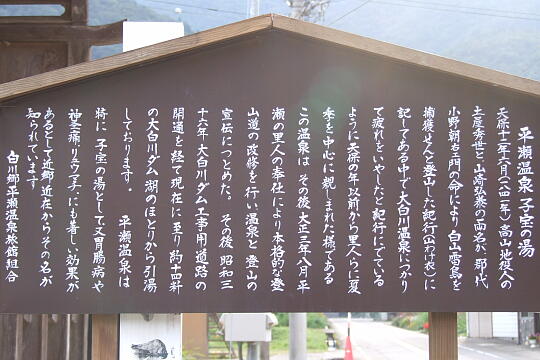 平瀬温泉 子宝の湯
天保十二年六月(一八四一年)高山地役人の
土屋秀世と、山崎弘泰の両名が、郡代
小野朝右エ門の命により白山雷鳥を
捕獲せんと登山した紀行(山分け衣)に
記してある中で大白川温泉につかり
て疲れをいやしたと記行にでている
ように天保の年以前から里人らに夏
季を中心に親しまれた様である
この温泉は その後大正三年八月平
瀬の里人の奉仕により本格的な登
山道の改修を行い温泉と登山の
宣伝につとめた。その後 昭和三
十六年 大白川ダム工事用道路の
開通を経て現在に至り約十四粁
の大白川ダム湖のほとりから引湯
しております。 平瀬温泉は
特に 子宝の湯として又胃腸病や
神経痛・リウマチにも著しい効果が
あるとして近郷近在からその名が
知られています
白川郷平瀬温泉旅館組合